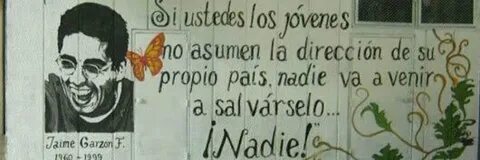 Si ustedes los jóvenes
no asumen la dirección de su
propio país, nadie va a venir
a salvárselo...
¡Nadie!"
Jaime Garzon F.
1960 - 1999